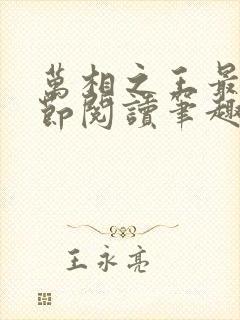 萬相之王最
節閱讀筆趣
王永亮